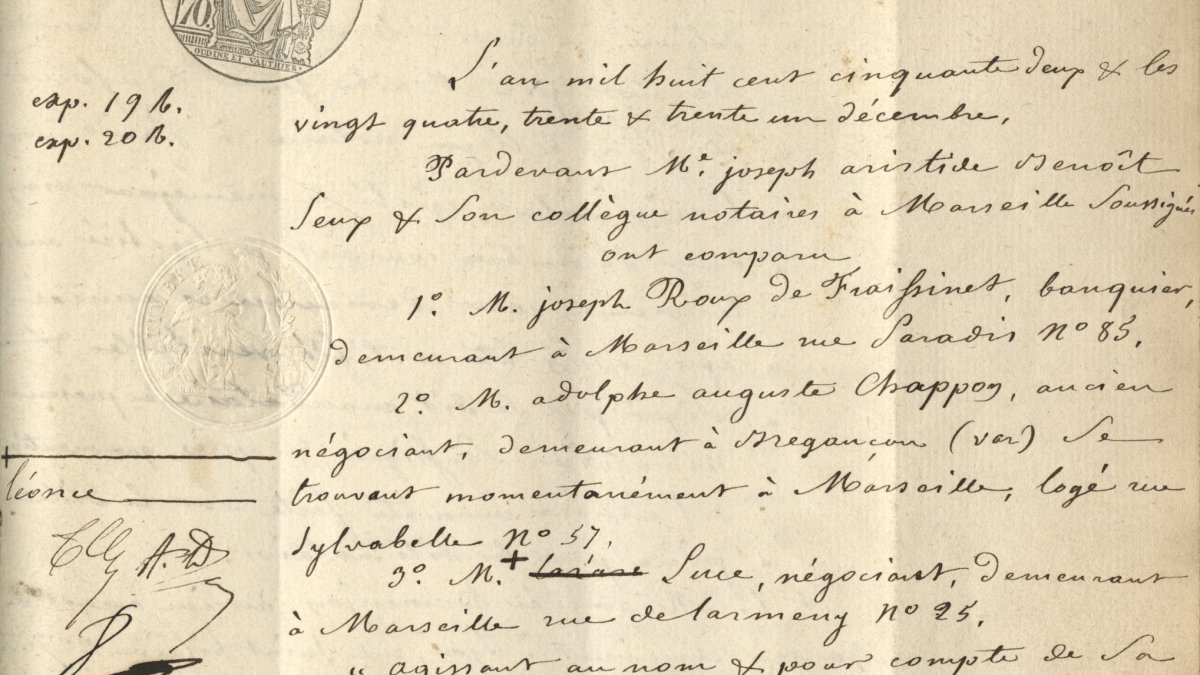 70.
OUDINÉ ET VAUTHIER.
exp. 19 b.
exp. 20 b.
L'an mil huit cent cinquante deux & les
vingt quatre, trente & trente un décembre,
Pardevant Me. joseph aristide Benoît
Seux & son collègue notaires à Marseille soussignés
ont comparu
1o. M. joseph Roux de Fraissinet, banquier,
demeurant à Marseille rue Paradis No 85.
2o. M. adolphe auguste Chappon, ancien
négociant, demeurant à Bregançon (var) se
trouvant momentanément à Marseille, logé rue
Sylvabelle No 57.
3o. M. + Luce, négociant, demeurant
à Marseille rue delarmeny No 25.
" agissant au nom & pour compte de sa
+
léonce
A.D